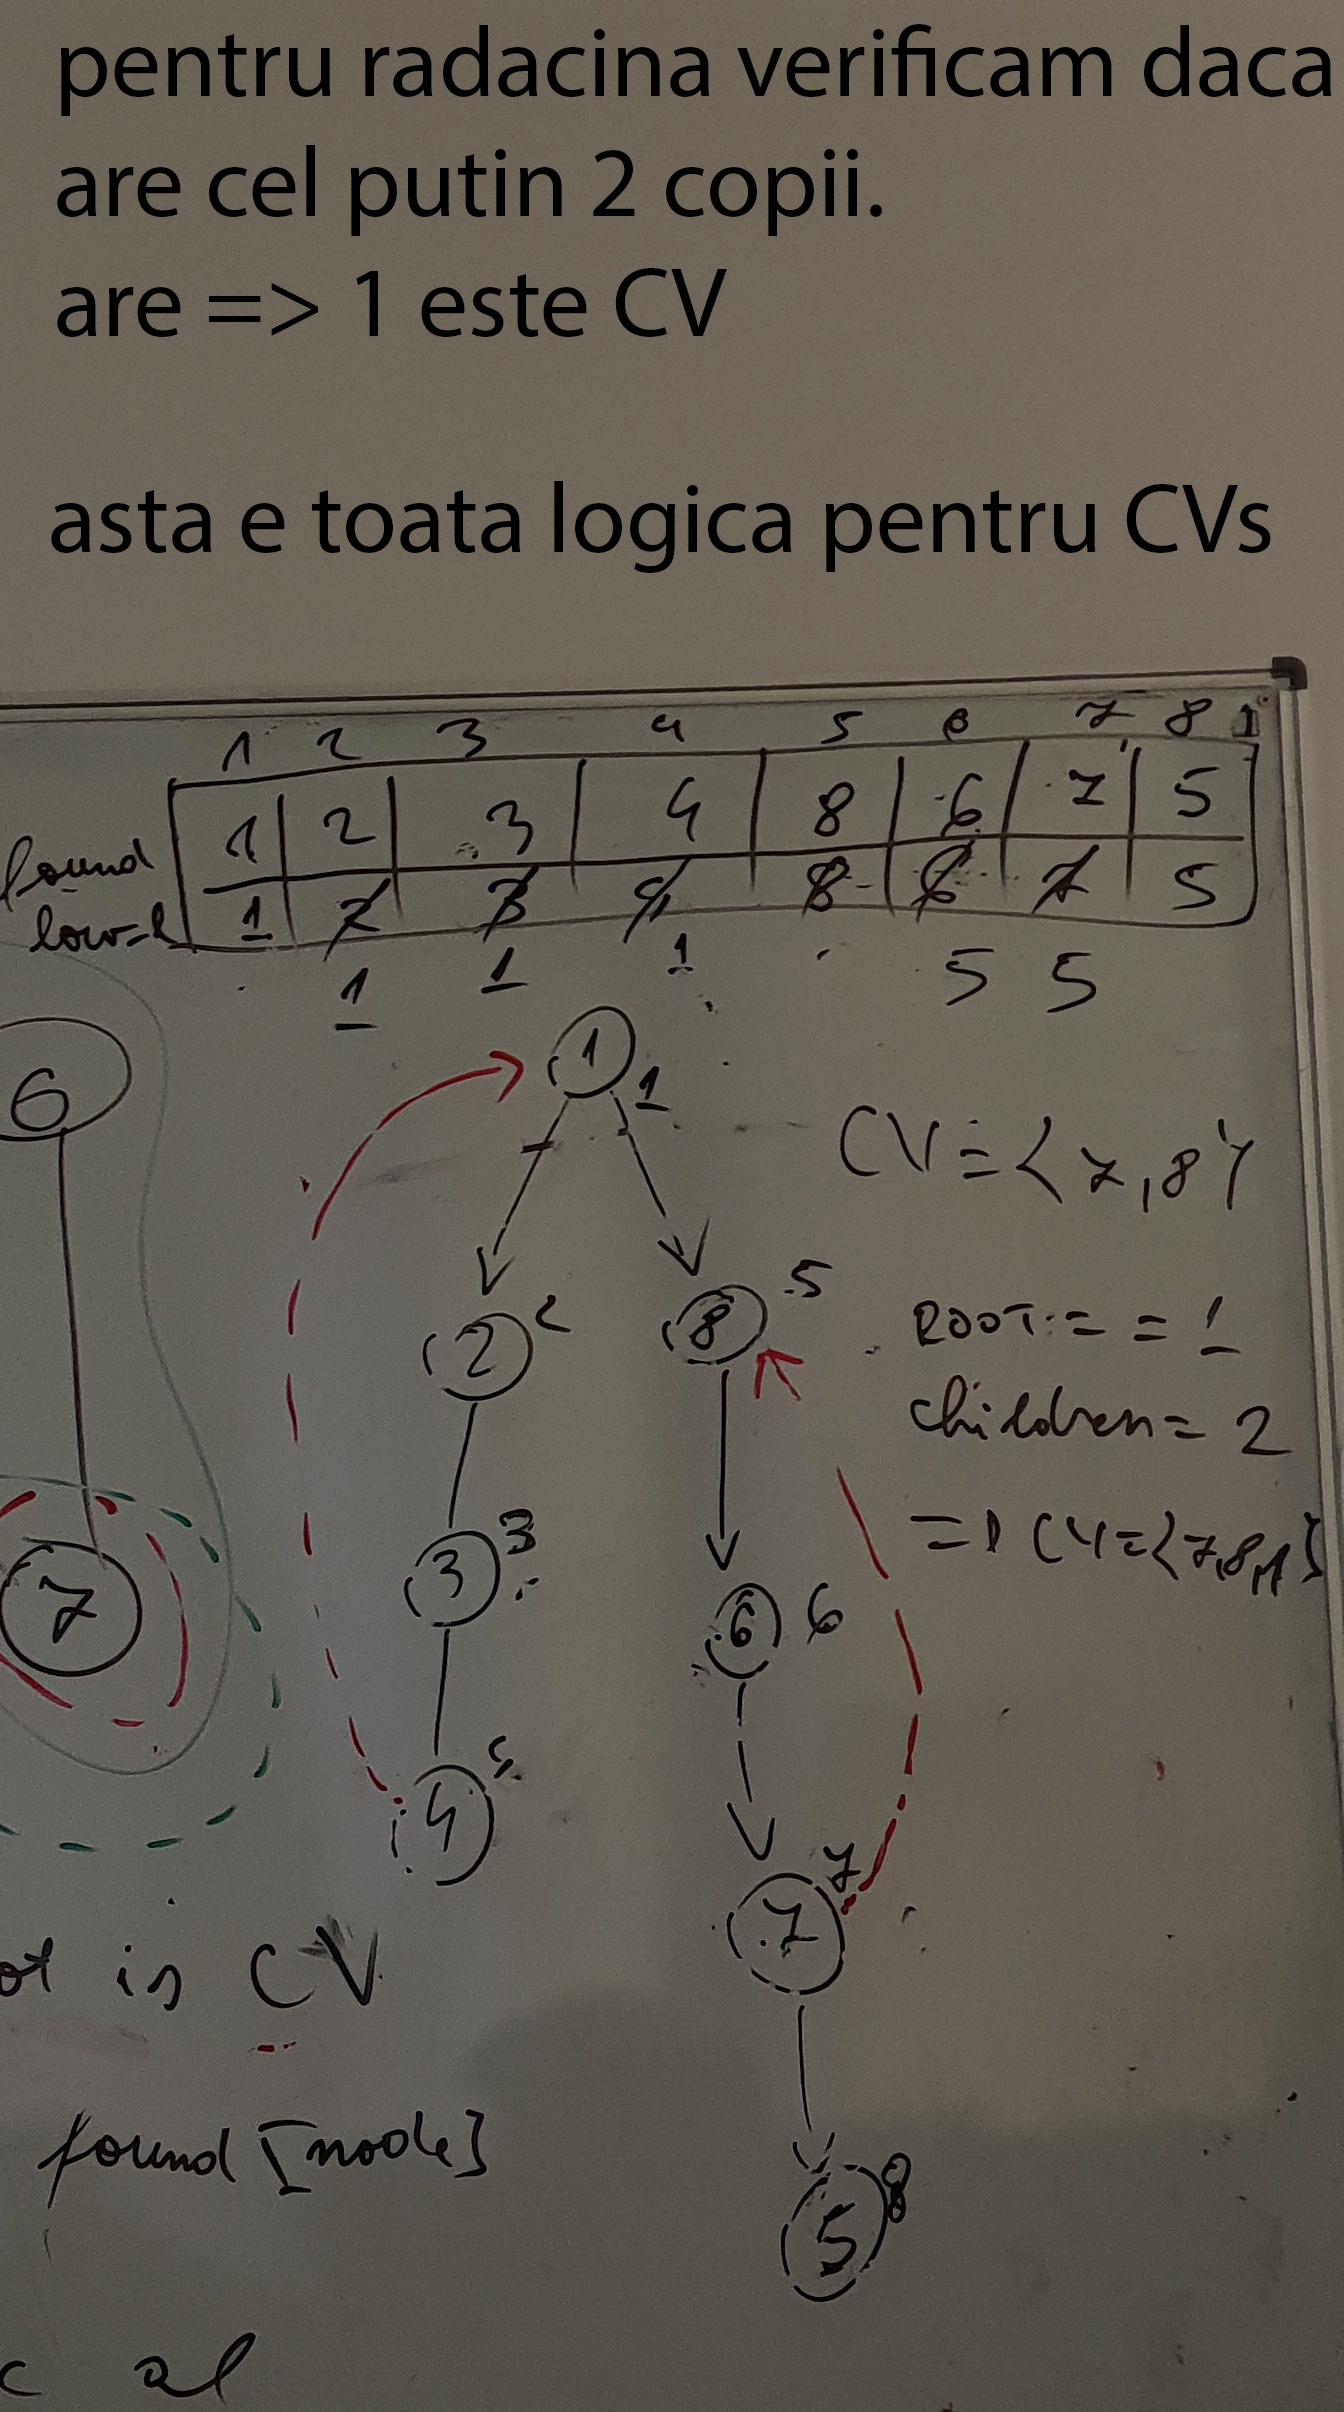 pentru radacina verificam daca
are cel putin 2 copii.
are => 1 este CV
asta e toata logica pentru CVs
1 2 3 4 5 6 7 8
found 1 2 3 4 8 6 7 5
low 1 2 3 4 8 6 7 5
1 1 1 5 5
1
1
6
CV = {7,8}
5
8
2
ROOT = = 1
children = 2
3
3
CV={7,8,1}
6 6
7
4
7
7
is CV
found [node]
8
5
al